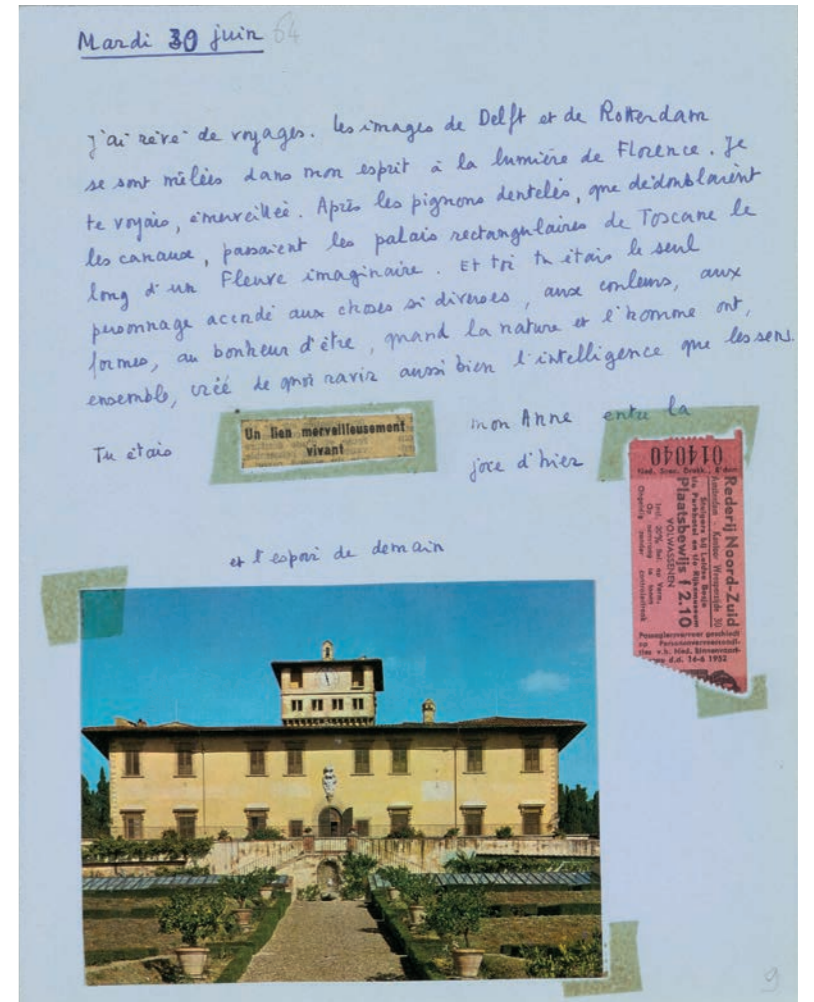 Mardi 30 juin 64
J'ai rêvé de voyages. Les images de Delft et de Rotterdam
se sont mêlées dans mon esprit à la lumière de Florence. Je
te voyais, émerveillée. Après les pignons dentelés, que dédoublaient
les canaux, passaient les palais rectangulaires de Toscane le
long d'un Fleuve imaginaire. Et toi tu étais le seul
personnage accordé aux choses si diverses, aux couleurs, aux
formes, au bonheur d'être, quand la nature et l'homme ont,
ensemble, créé de quoi ravir aussi bien l'intelligence que les sens.
Tu étais
Un lien merveilleusement
vivant
mon Anne entre la
joie d'hier
et l'espoir de demain
014040
Rederij Noord-Zuid
Amsterdam - Kantoor Weesperzijde 30
Steigers bij Leidse Bosje
t/o Parkhotel en t/o Rijksmuseum
Plaatsbewijs f 2.10
VOLWASSENEN
Op aanvraag te tonen
Ongeldig zonder controlestrook
Passagiersvervoer geschiedt
op Personenvervoercondi-
ties v.h. Ned. Binnenvaart-
d.d. 14-6 1952
9